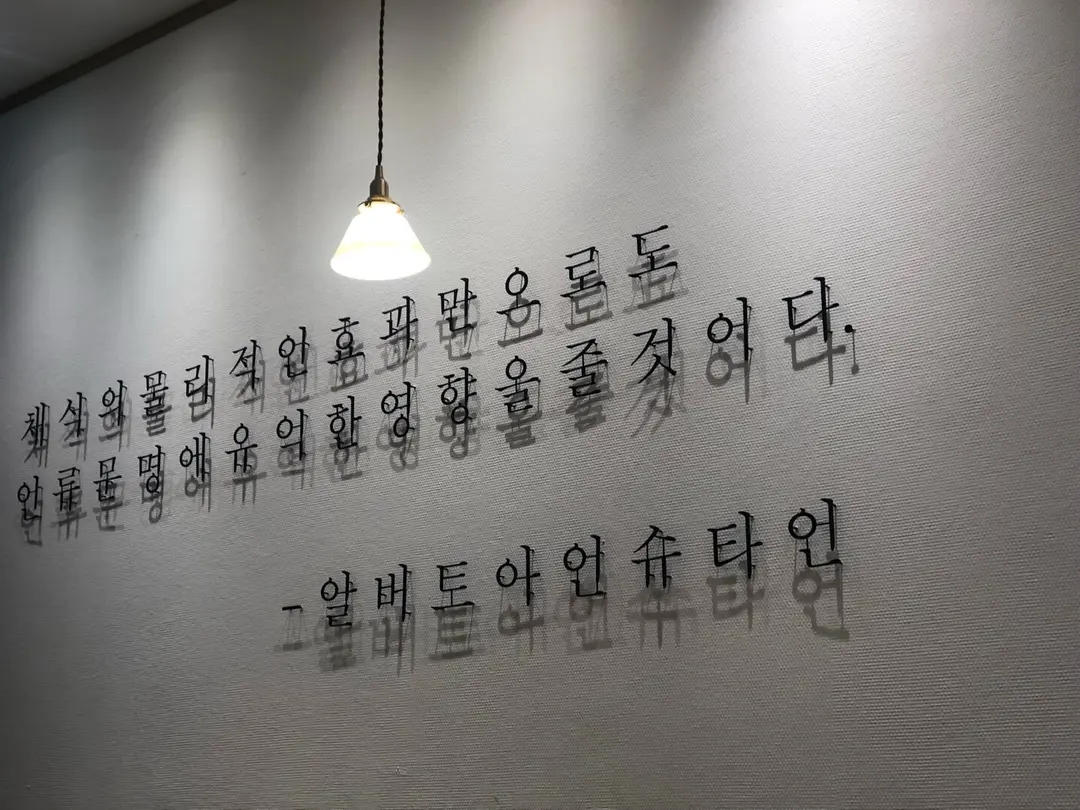 채식의물리적인효과만으로도
인류문명에유익한영향을줄것이다.
- 알버트아인슈타인